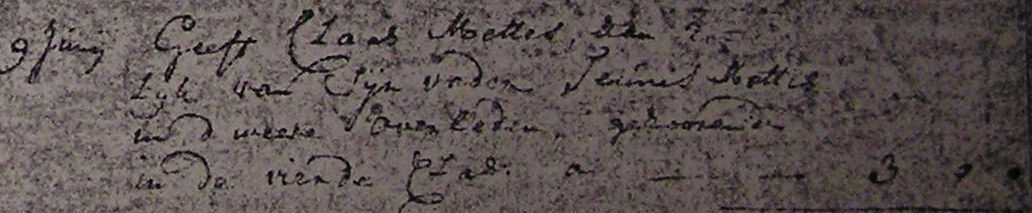 9 Junij Geeft Claas Mettes, den
Lyk van Sijn vader Teunis Mettes
in d weere overleden, gehoorende
in de vierde Clas. a — — 3 , ,